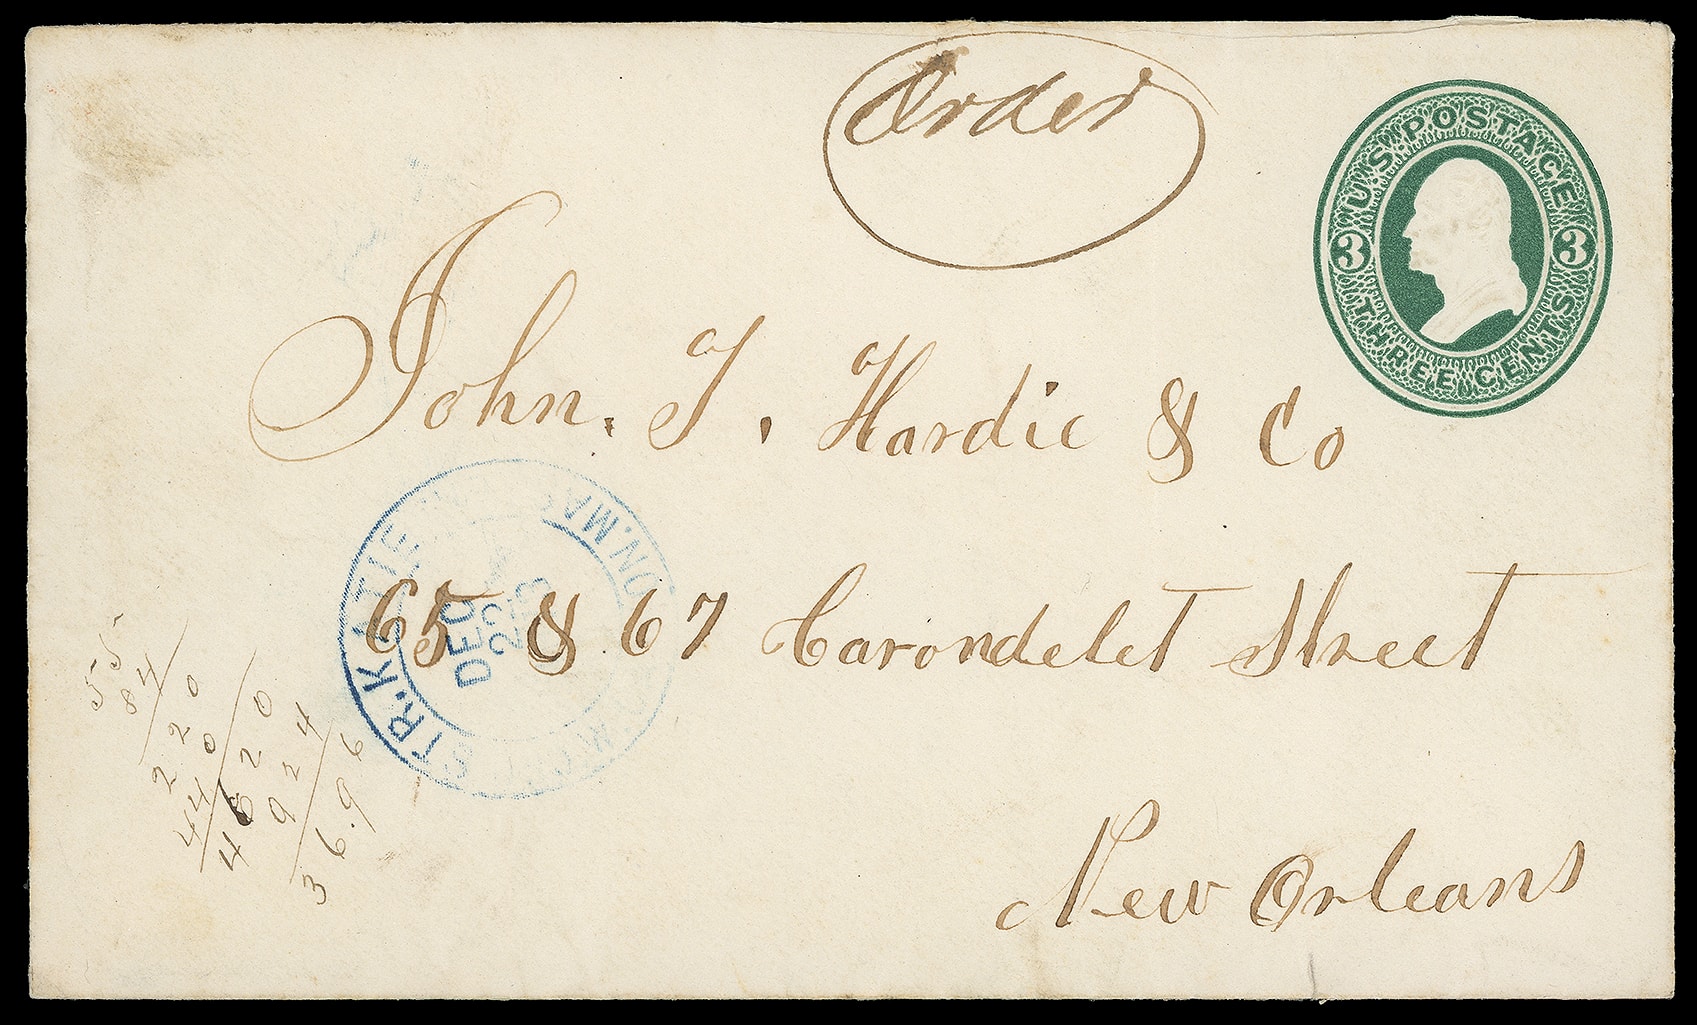 Order
U.S. POSTAGE
3 3
THREE CENTS
John. T. Hardie & Co
STR. KATIE
ON. MAS
DEC
22
65 & 67 Carondelet Street
New Orleans
55
84
220
440
4620
924
36.96